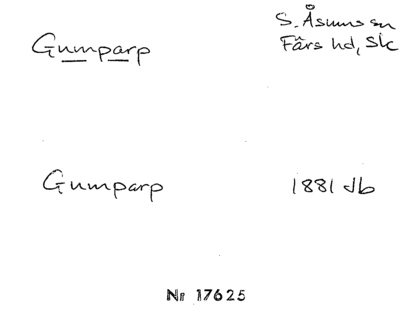 Gumparp
S. Åsums sn
Färs hd, Sk
Gumparp
1881 Jb
Nr 17625